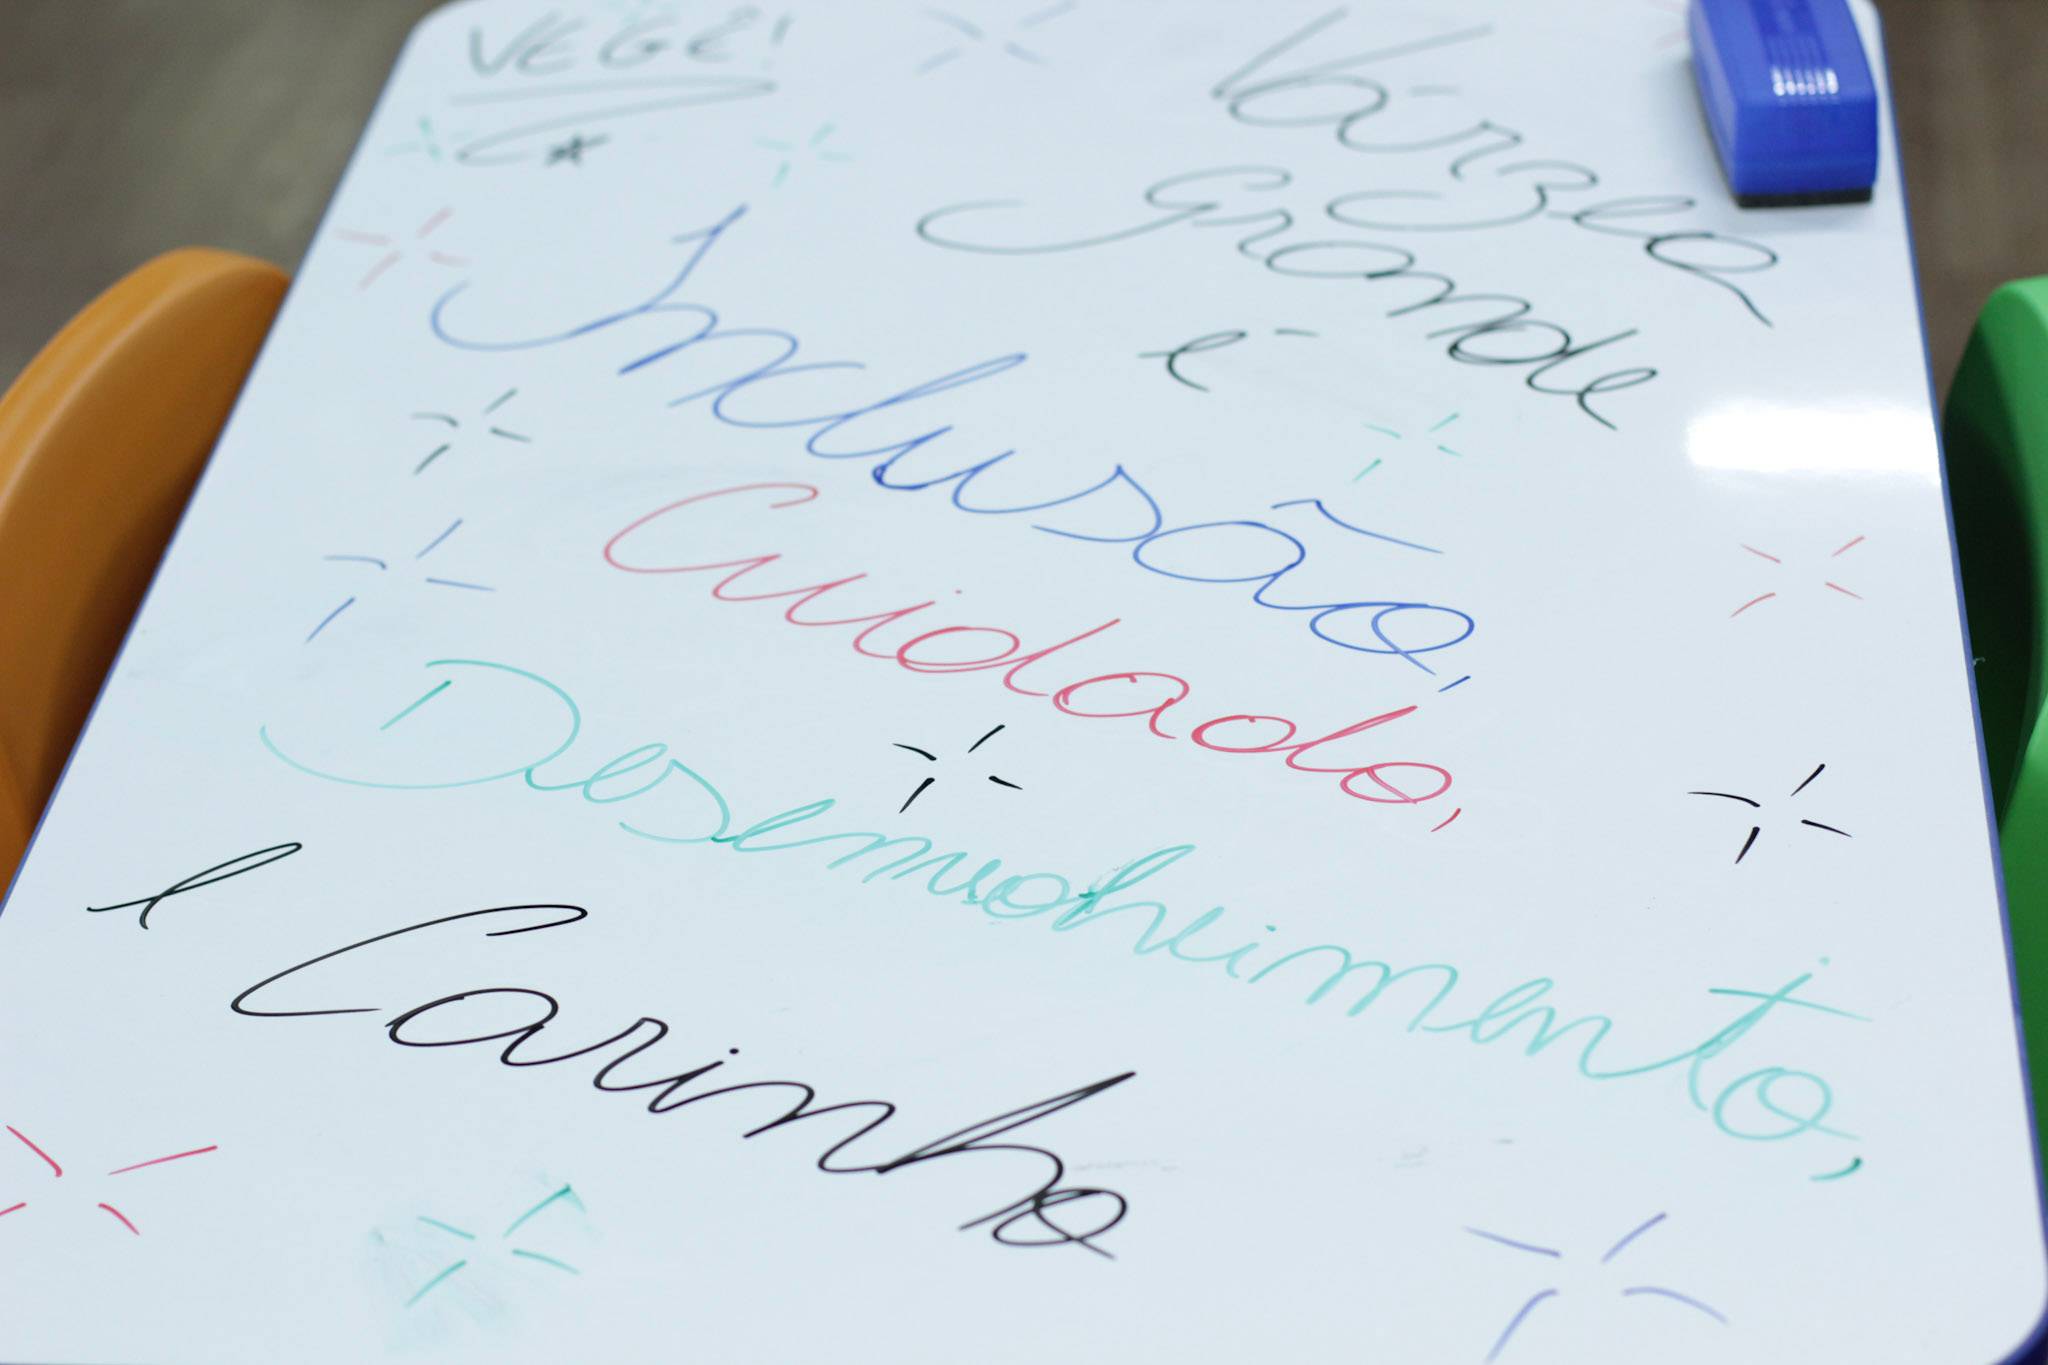 VEGÊ!
Várzea
Grande
é
Inclusão,
Cuidado,
Desenvolvimento,
e Carinho